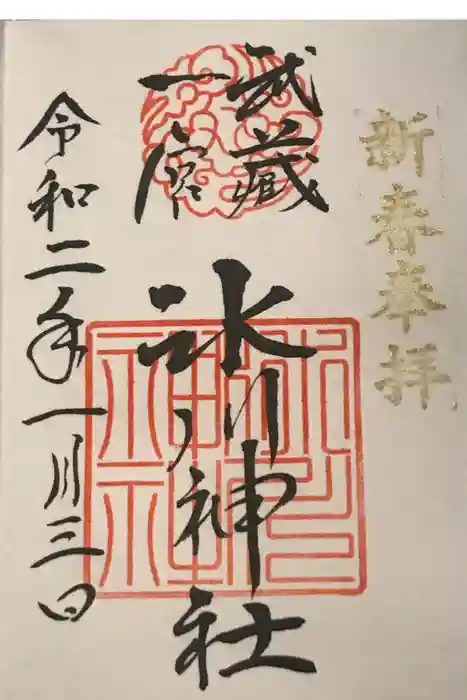 新春奉拝
武蔵
一宮
氷川神社
令和二年一月三日
氷川
神社